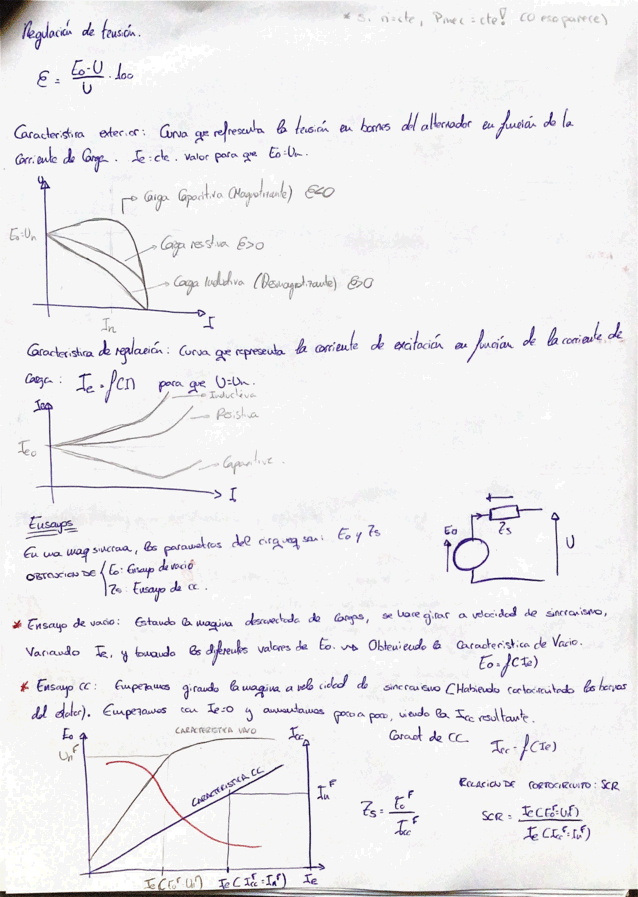 * Si n=cte, Pmec=cte! (O eso parece)
Regulación de tensión.
ε = (E₀-U)/U · 100
Caracteristica exterior: Curva que representa la tensión en bornes del alternador en función de la
corriente de Carga. Ie=cte. valor para que E₀=Un.
U
Carga Capacitiva (Magnetizante) ε<0
E₀=Un
Carga resistiva ε>0
Carga Inductiva (Desmagnetizante) ε>0
In
I
Caracteristica de regulación: Curva que representa la corriente de excitación en función de la corriente de
Carga: Ie = f(I) para que U=Un.
Inductiva
Resistiva
Ie₀
Capacitiva.
I
Ensayos
En una maq sincrona, los parametros del circ eq son: E₀ y Zs
OBTENCION DE { E₀: Ensayo de vacio
Zs: Ensayo de CC.
E₀
Zs
U
* Ensayo de vacio: Estando la maquina desconectada de cargas, se hace girar a velocidad de sincronismo,
Variando Ie, y tomando los diferentes valores de E₀. → Obteniendo la Caracteristica de Vacio.
E₀=f(Ie)
* Ensayo CC: Empezamos girando la maquina a velocidad de sincronismo (Habiendo cortocircuitado los bornes
del estator). Empezamos con Ie=0 y aumentamos poco a poco, viendo la Icc resultante.
Caract de CC Icc=f(Ie)
E₀
CARACTERISTICA VACIO
Icc
Unᶠ
CARACTERISTICA CC
Inᶠ
Zs = E₀ᶠ/Iccᶠ
RELACION DE CORTOCIRCUITO: SCR
SCR = Ie(E₀ᶠ=Unᶠ)/Ie(Iccᶠ=Inᶠ)
Ie(E₀ᶠ=Unᶠ) Ie(Iccᶠ=Inᶠ) Ie